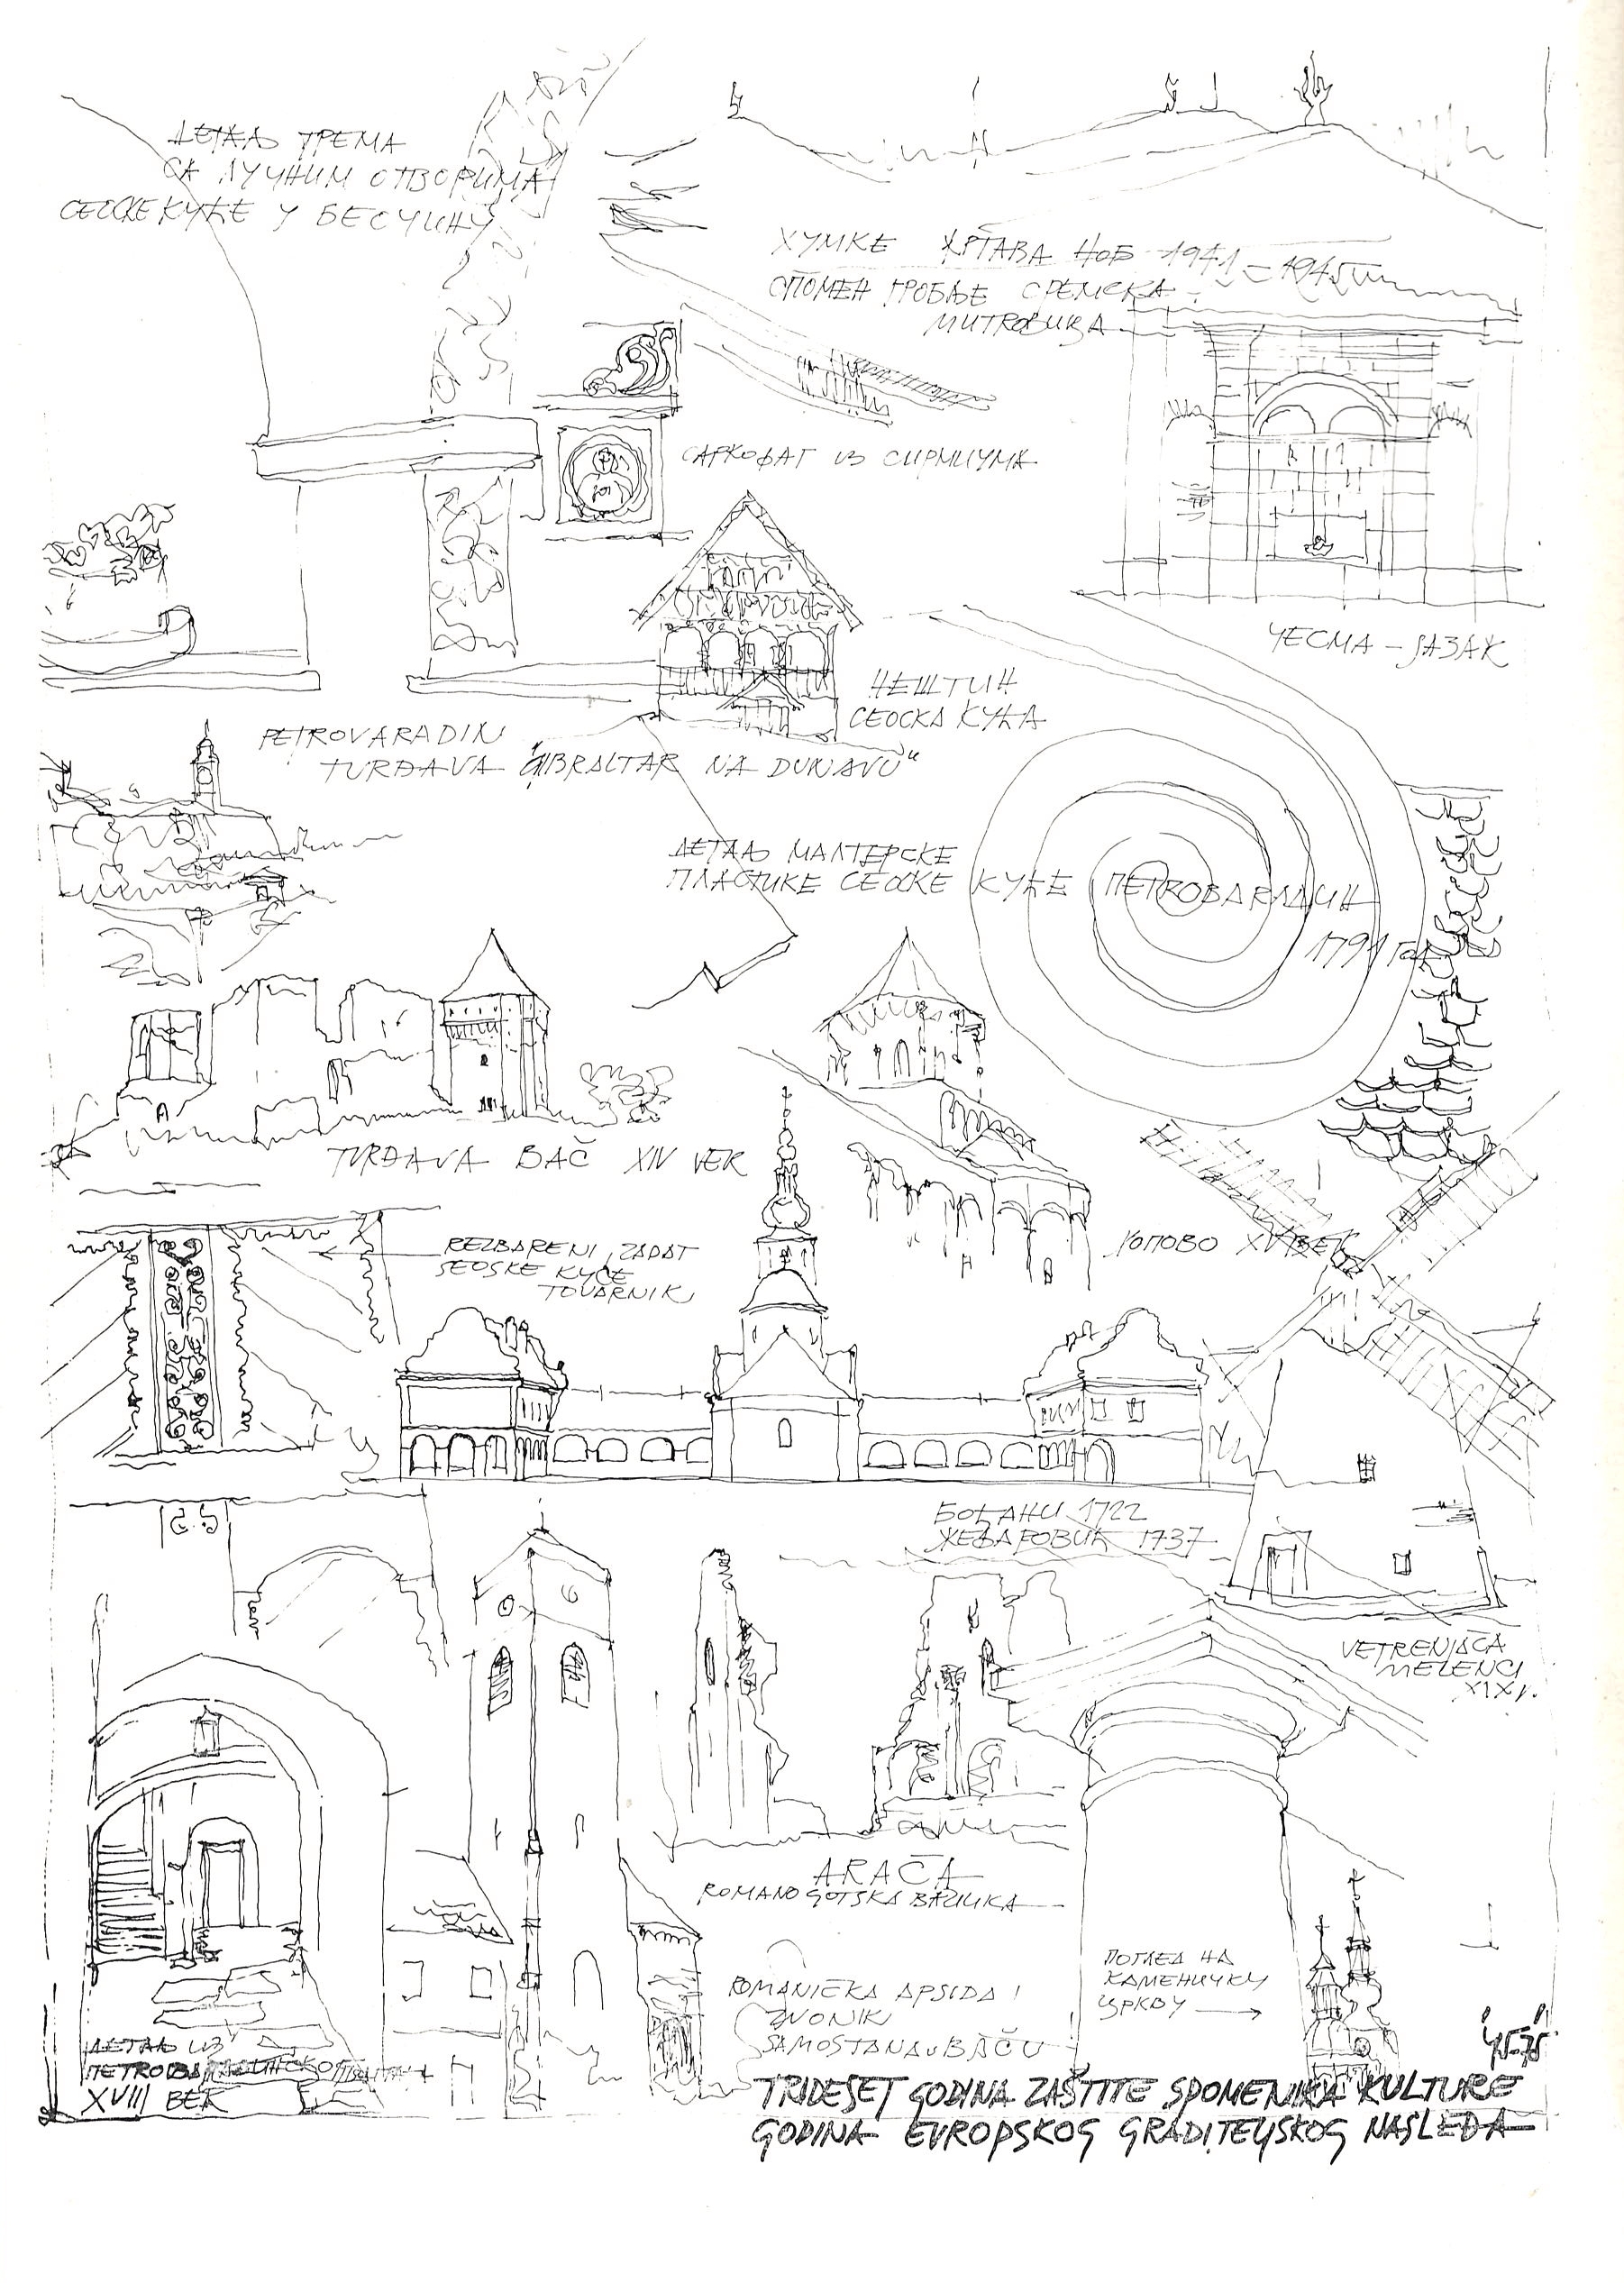 ДЕТАЉ ТРЕМА
СА ЛУЧНИМ ОТВОРИМА
СЕОСКЕ КУЋЕ У БЕОЧИНУ
ХУМКЕ ЖРТАВА НОБ 1941–1945
СПОМЕН ГРОБЉЕ СРЕМСКА
МИТРОВИЦА
САРКОФАГ ИЗ СИРМИУМА
ЧЕСМА – ЈАЗАК
НЕШТИН
СЕОСКА КУЋА
PETROVARADIN
TVRĐAVA "GIBRALTAR NA DUNAVU"
ДЕТАЉ МАЛТЕРСКЕ
ПЛАСТИКЕ СЕОСКЕ КУЋЕ ПЕТРОВАРАДИН
1791 ГОД
TVRĐAVA BAČ XIV VEK
REZBARENI ZABAT
SEOSKE KUĆE
TOVARNIK
ХОПОВО XVI ВЕК
БОЂАНИ 1722
ЖЕФАРОВИЋ 1737
VETRENJAČA
MELENCI
XIX V.
ARAČA
ROMANO GOTSKA BAZILIKA
ROMANIČKA APSIDA I
ZVONIK
SAMOSTANA U BAČU
ПОГЛЕД НА
КАМЕНИЧКУ
ЦРКВУ
ДЕТАЉ ИЗ
XVIII ВЕК
'45-75'
TRIDESET GODINA ZAŠTITE SPOMENIKA KULTURE
GODINA EVROPSKOG GRADITELJSKOG NASLEĐA